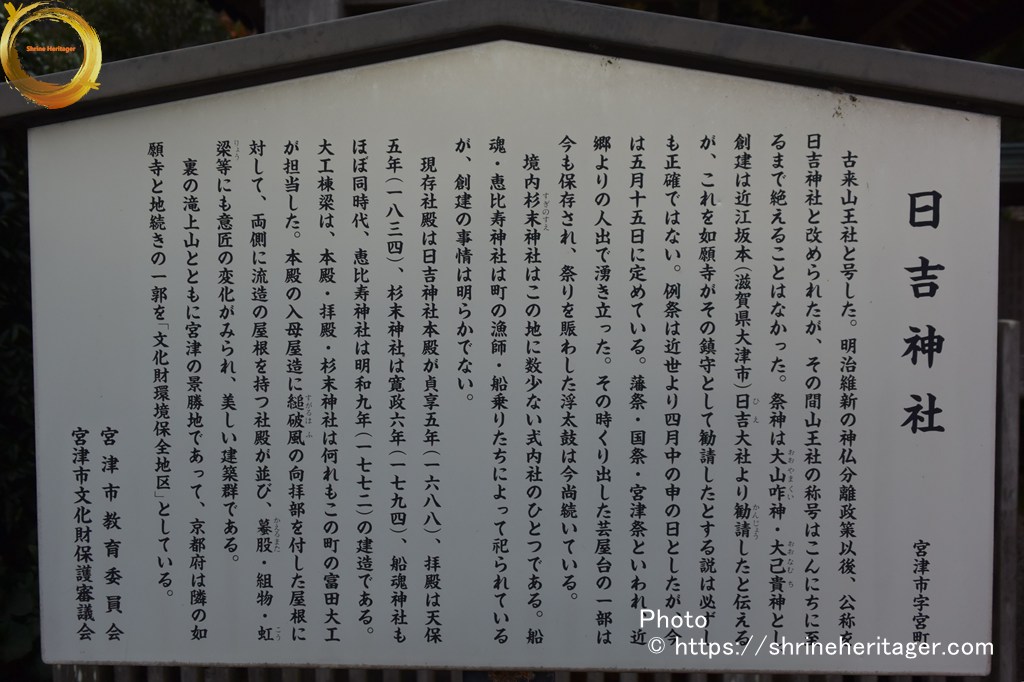 Shrine Heritager
日吉神社
宮津市字宮町
古来山王社と号した。明治維新の神仏分離政策以後、公称を
日吉神社と改められたが、その間山王社の称号はこんにちに至
るまで絶えることはなかった。祭神は大山咋神・大己貴神とし
創建は近江坂本（滋賀県大津市）日吉大社より勧請したと伝える
が、これを如願寺がその鎮守として勧請したとする説は必ずし
も正確ではない。例祭は近世より四月中の申の日としたが、今
は五月十五日に定めている。藩祭・国祭・宮津祭といわれ、近
郷よりの人出で湧き立った。その時くり出した芸屋台の一部は
今も保存され、祭りを賑わした浮太鼓は今尚続いている。
境内杉末神社はこの地に数少ない式内社のひとつである。船
魂・恵比寿神社は町の漁師・船乗りたちによって祀られている
が、創建の事情は明らかでない。
現存社殿は日吉神社本殿が貞享五年（一六八八）、拝殿は天保
五年（一八三四）、杉末神社は寛政六年（一七九四）、船魂神社も
ほぼ同時代、恵比寿神社は明和九年（一七七二）の建造である。
大工棟梁は、本殿・拝殿・杉末神社は何れもこの町の富田大工
が担当した。本殿の入母屋造に縋破風の向拝部を付した屋根に
対して、両側に流造の屋根を持つ社殿が並び、蟇股・組物・虹
梁等にも意匠の変化がみられ、美しい建築群である。
裏の滝上山とともに宮津の景勝地であって、京都府は隣の如
願寺と地続きの一郭を「文化財環境保全地区」としている。
宮津市教育委員会
宮津市文化財保護審議会
Photo
© https://shrineheritager.com